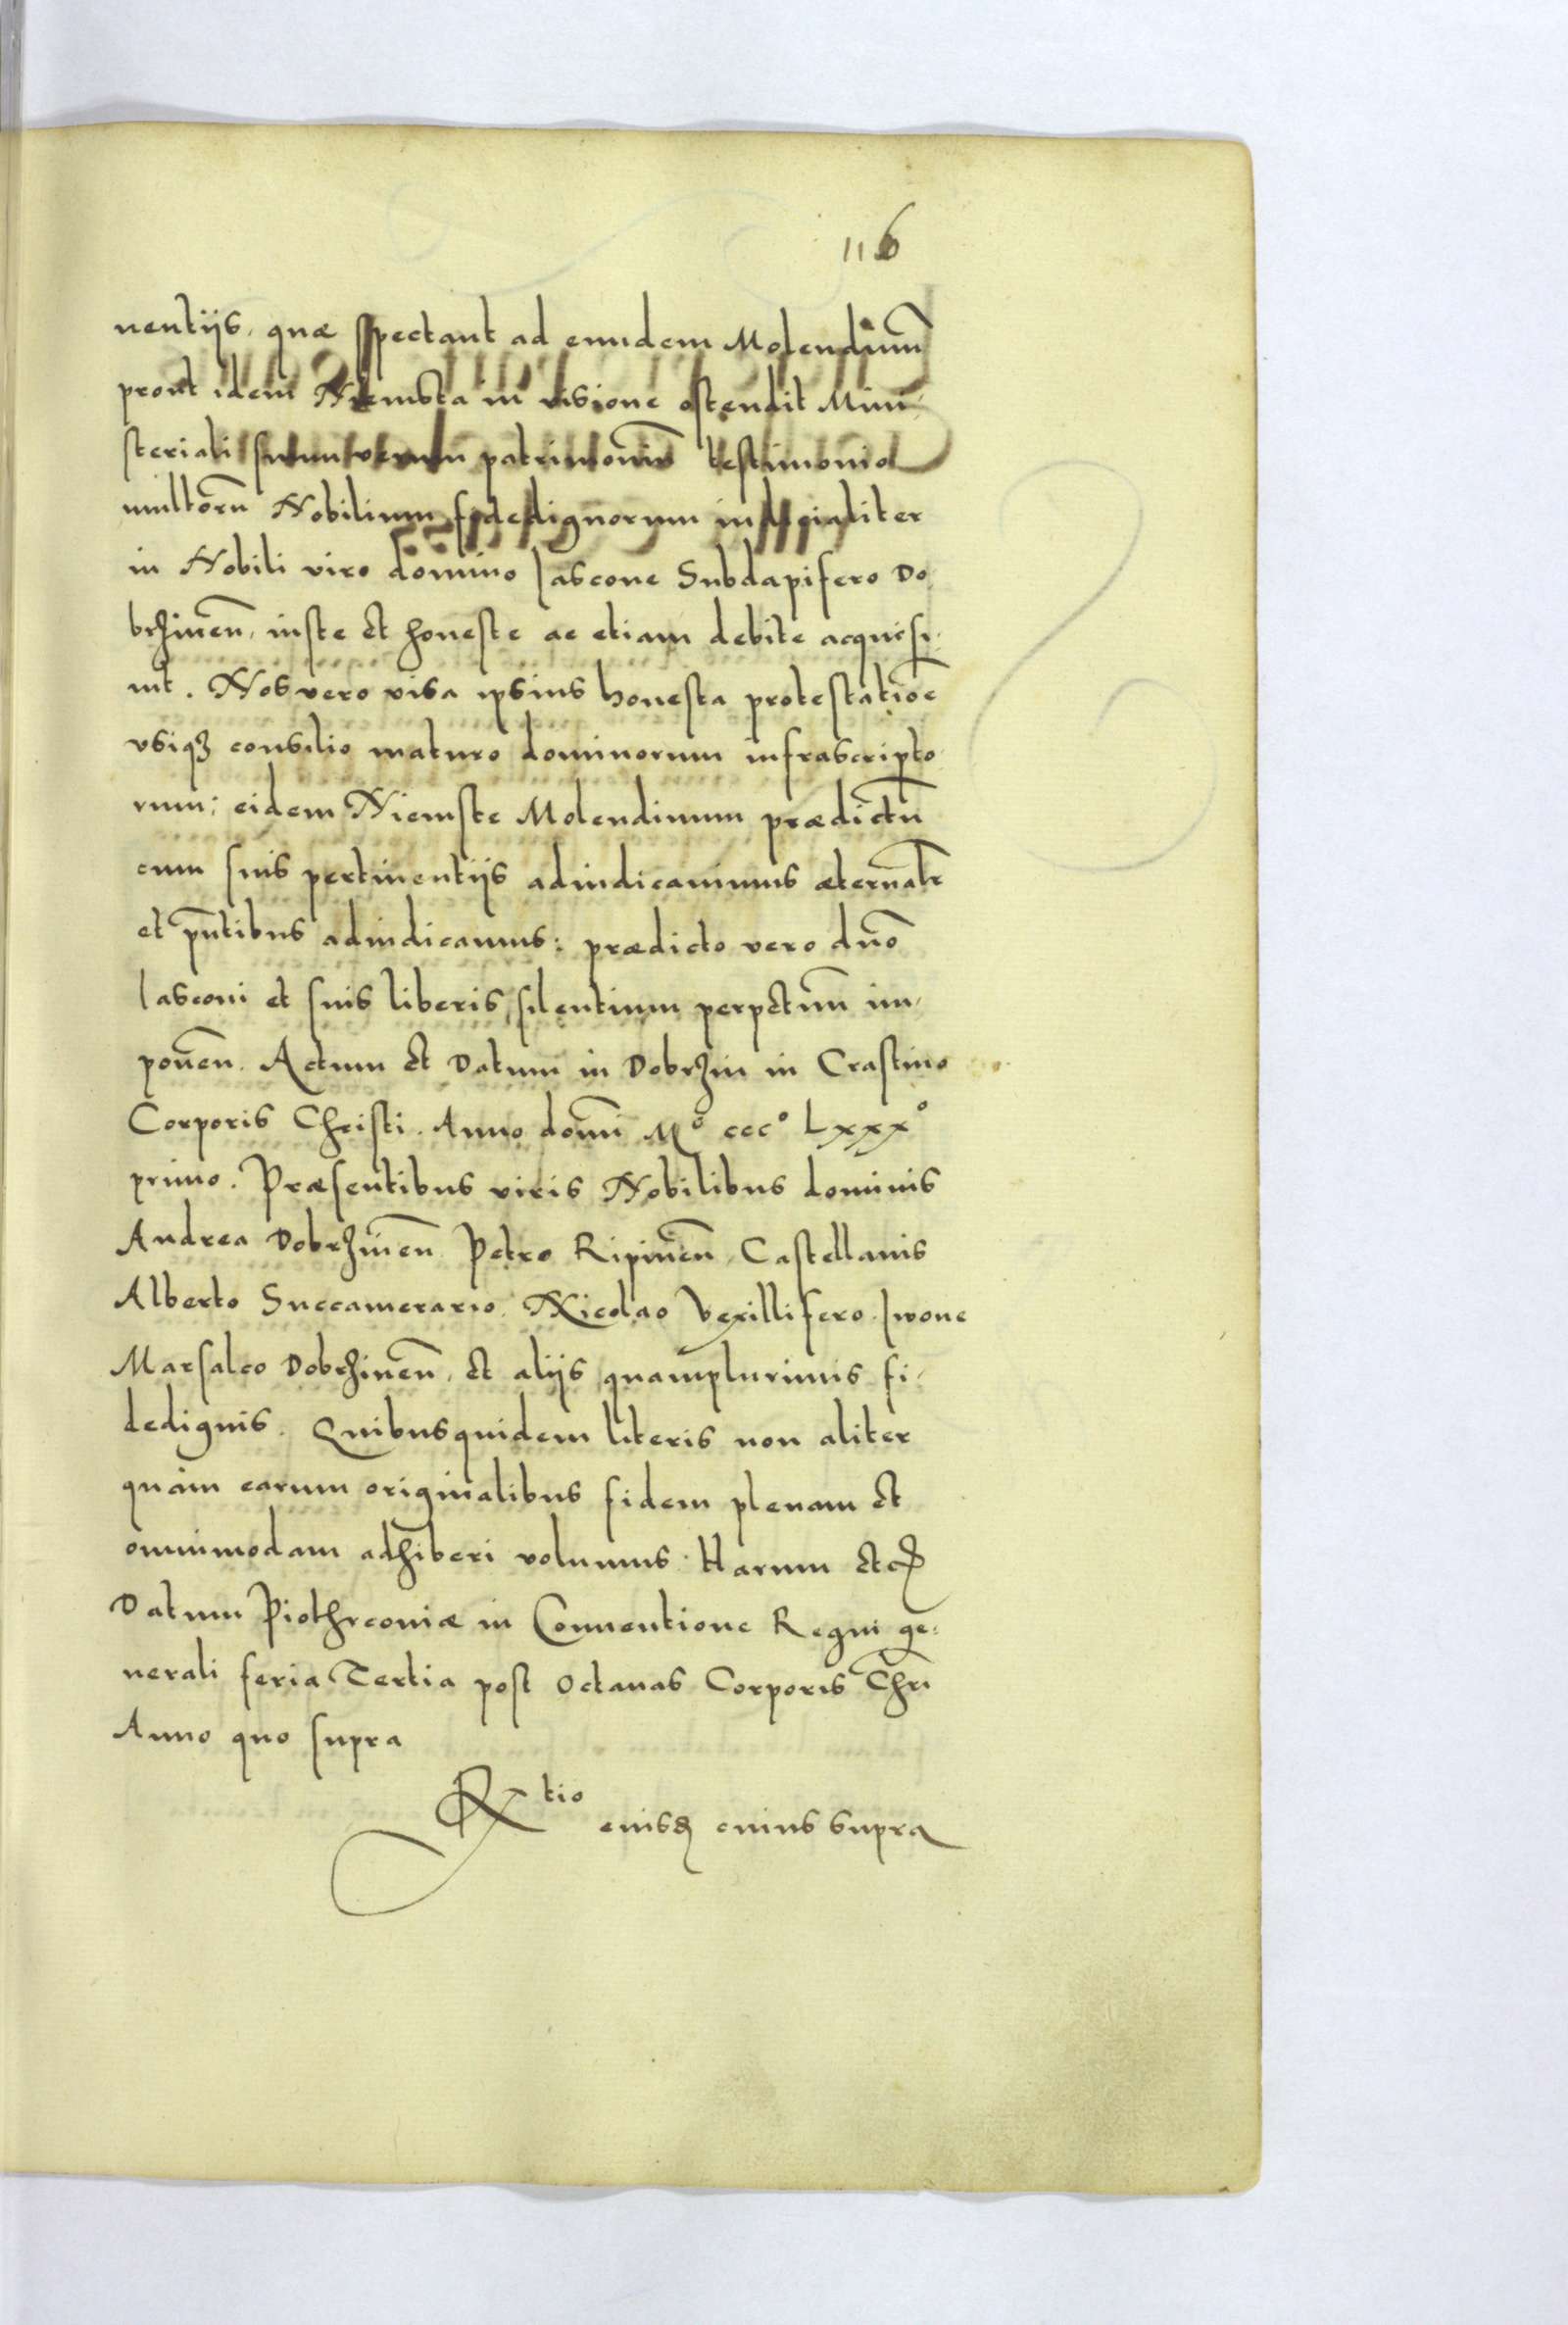 116
nentijs, quæ spectant ad eundem Molendinū
prout idem Niemsta in visione ostendit Mini-
steriali suum verum patrimoniū testimonio
multorū Nobilium fidedignorum iudicialiter
in Nobili viro domino Jascone Subdapifero Do-
brzineñ, iuste et honeste ac etiam debite acquisi-
uit. Nos vero visa ipsius honesta protestatiōe
vsiqʒ consilio maturo dominorum infrascripto-
rum; eidem Niemste Molendinum prædictū
cum suis pertinentijs adiudicauimus æternalr̄
et pn̄tibus adiudicamus: prædicto vero dn̄o
Jasconi et suis liberis, silentium perpetuū im-
poneñ. Actum et Datum in Dobrzin in Crastino
Corporis Christi. Anno domī Mº cccº Lxxxº
primo. Præsentibus viris Nobilibus dominis
Andrea Dobrzineñ Petro Ripineñ, Castellanis
Alberto Succamerario, Nicolao Vexillifero, Iwone
Marsalco Dobrzineñ, et alijs quamplurimis fi-
dedignis. Quibusquidem literis non aliter
quàm earum originalibus fidem plenam et
omnimodam adhiberi volumus. Harum etc
Datum Piothrcouiæ in Conuentione Regni ge-
nerali feria Tertia post Octauas Corporis Chri̅
Anno quo supra
Rtio eiusd cuius supra